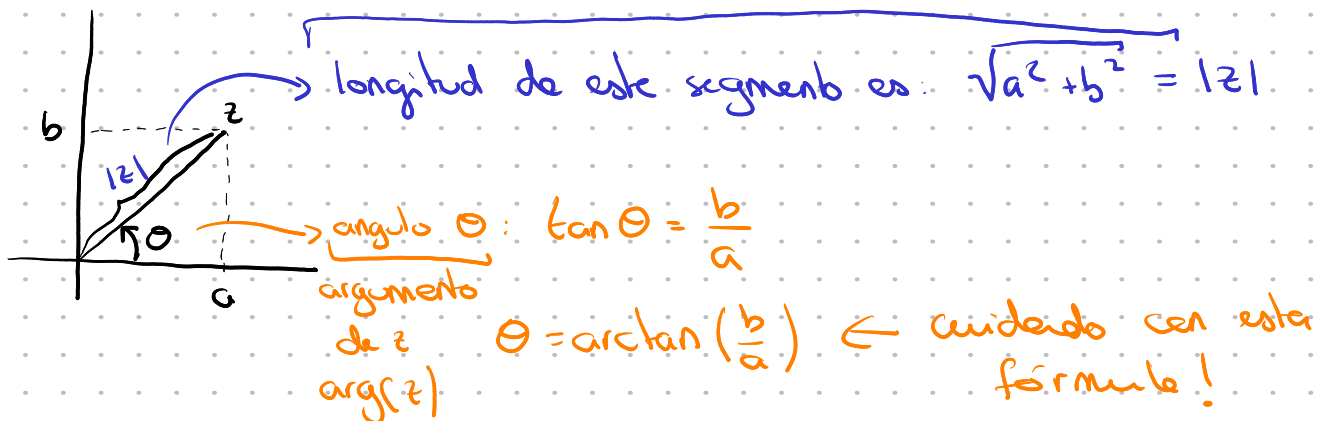 longitud de este segmento es: √a² + b² = |z|
b
z
|z|
θ
a
angulo θ: tan θ = b/a
argumento
de z
arg(z)
θ = arctan (b/a) ← cuidado con esta
fórmula!